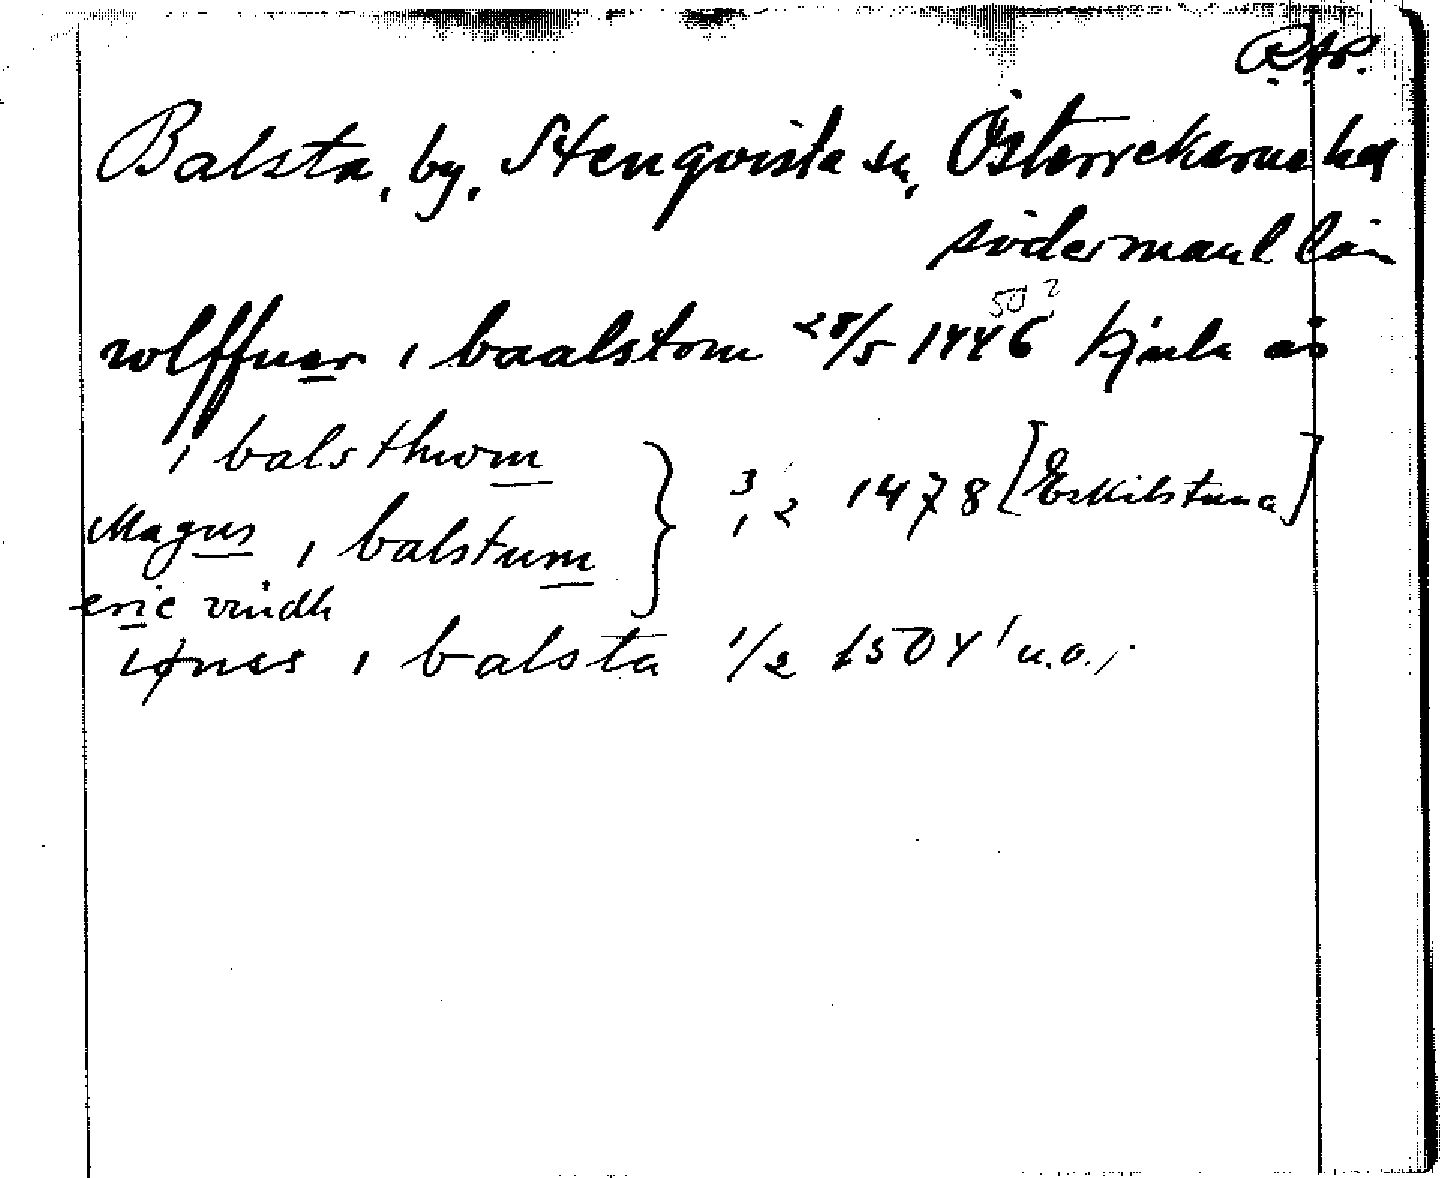 R.A.P.
Balsta, by, Stenqvista sn, Österrekarne hd
Södermanl län
rolffuer i baalstom 28/5 1446 Kjula ås
50 ?
i balsthwom
Magus i balstum 3/2 1478 [Eskilstuna]
eric vindh
i balsta 1/2 1504 u.o.